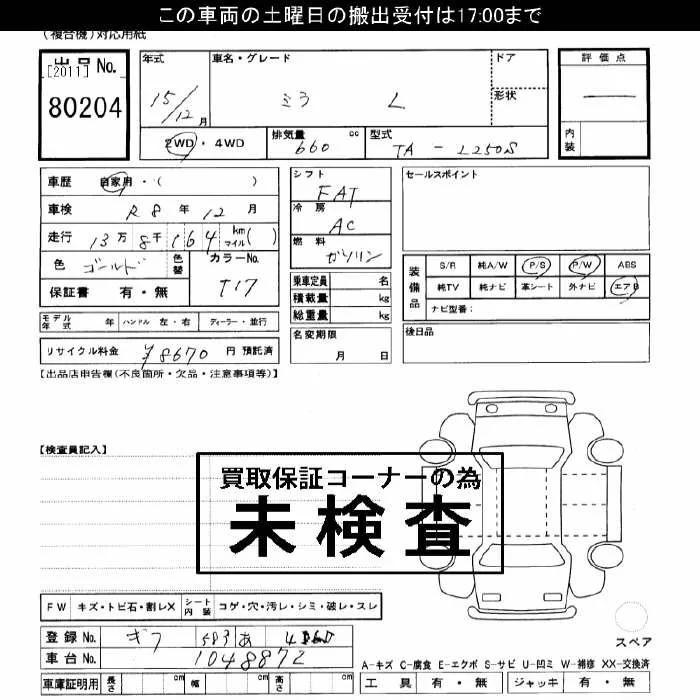 この車両の土曜日の搬出受付は17:00まで
(複合機)対応用紙
出品No.
[2011]
80204
年式
15/12月
車名・グレード
ミラ L
ドア
形状
2WD・4WD
排気量 660 cc
型式 TA-L250S
評価点
内装
車歴 自家用・( )
車検 R8年12月
走行 13万8千164 km マイル( )
色 ゴールド 色替
カラーNo. T17
保証書 有・無
シフト FAT
冷房 AC
燃料 ガソリン
乗車定員 名
積載量 kg
総重量 kg
セールスポイント
装備品
S/R 純A/W P/S P/W ABS
純TV 純ナビ 革シート 外ナビ エアB
ナビ型番:
モデル年式 年 ハンドル 左・右 ディーラー・並行
名変期限 月 日
後日品
リサイクル料金 ¥8670 円 預託済
【出品店申告欄(不良箇所・欠品・注意事項等)】
【検査員記入】
買取保証コーナーの為
未検査
FW キズ・トビ石・割レX シート内装 コゲ・穴・汚レ・シミ・破レ・スレ
スペア
登録No. ギフ 583 あ
車台No. 1048872
A-キズ C-腐食 E-エクボ S-サビ U-凹ミ W-補修 XX-交換済
車庫証明用 長さ cm 幅 cm 高さ cm
工具 有・無 ジャッキ 有・無